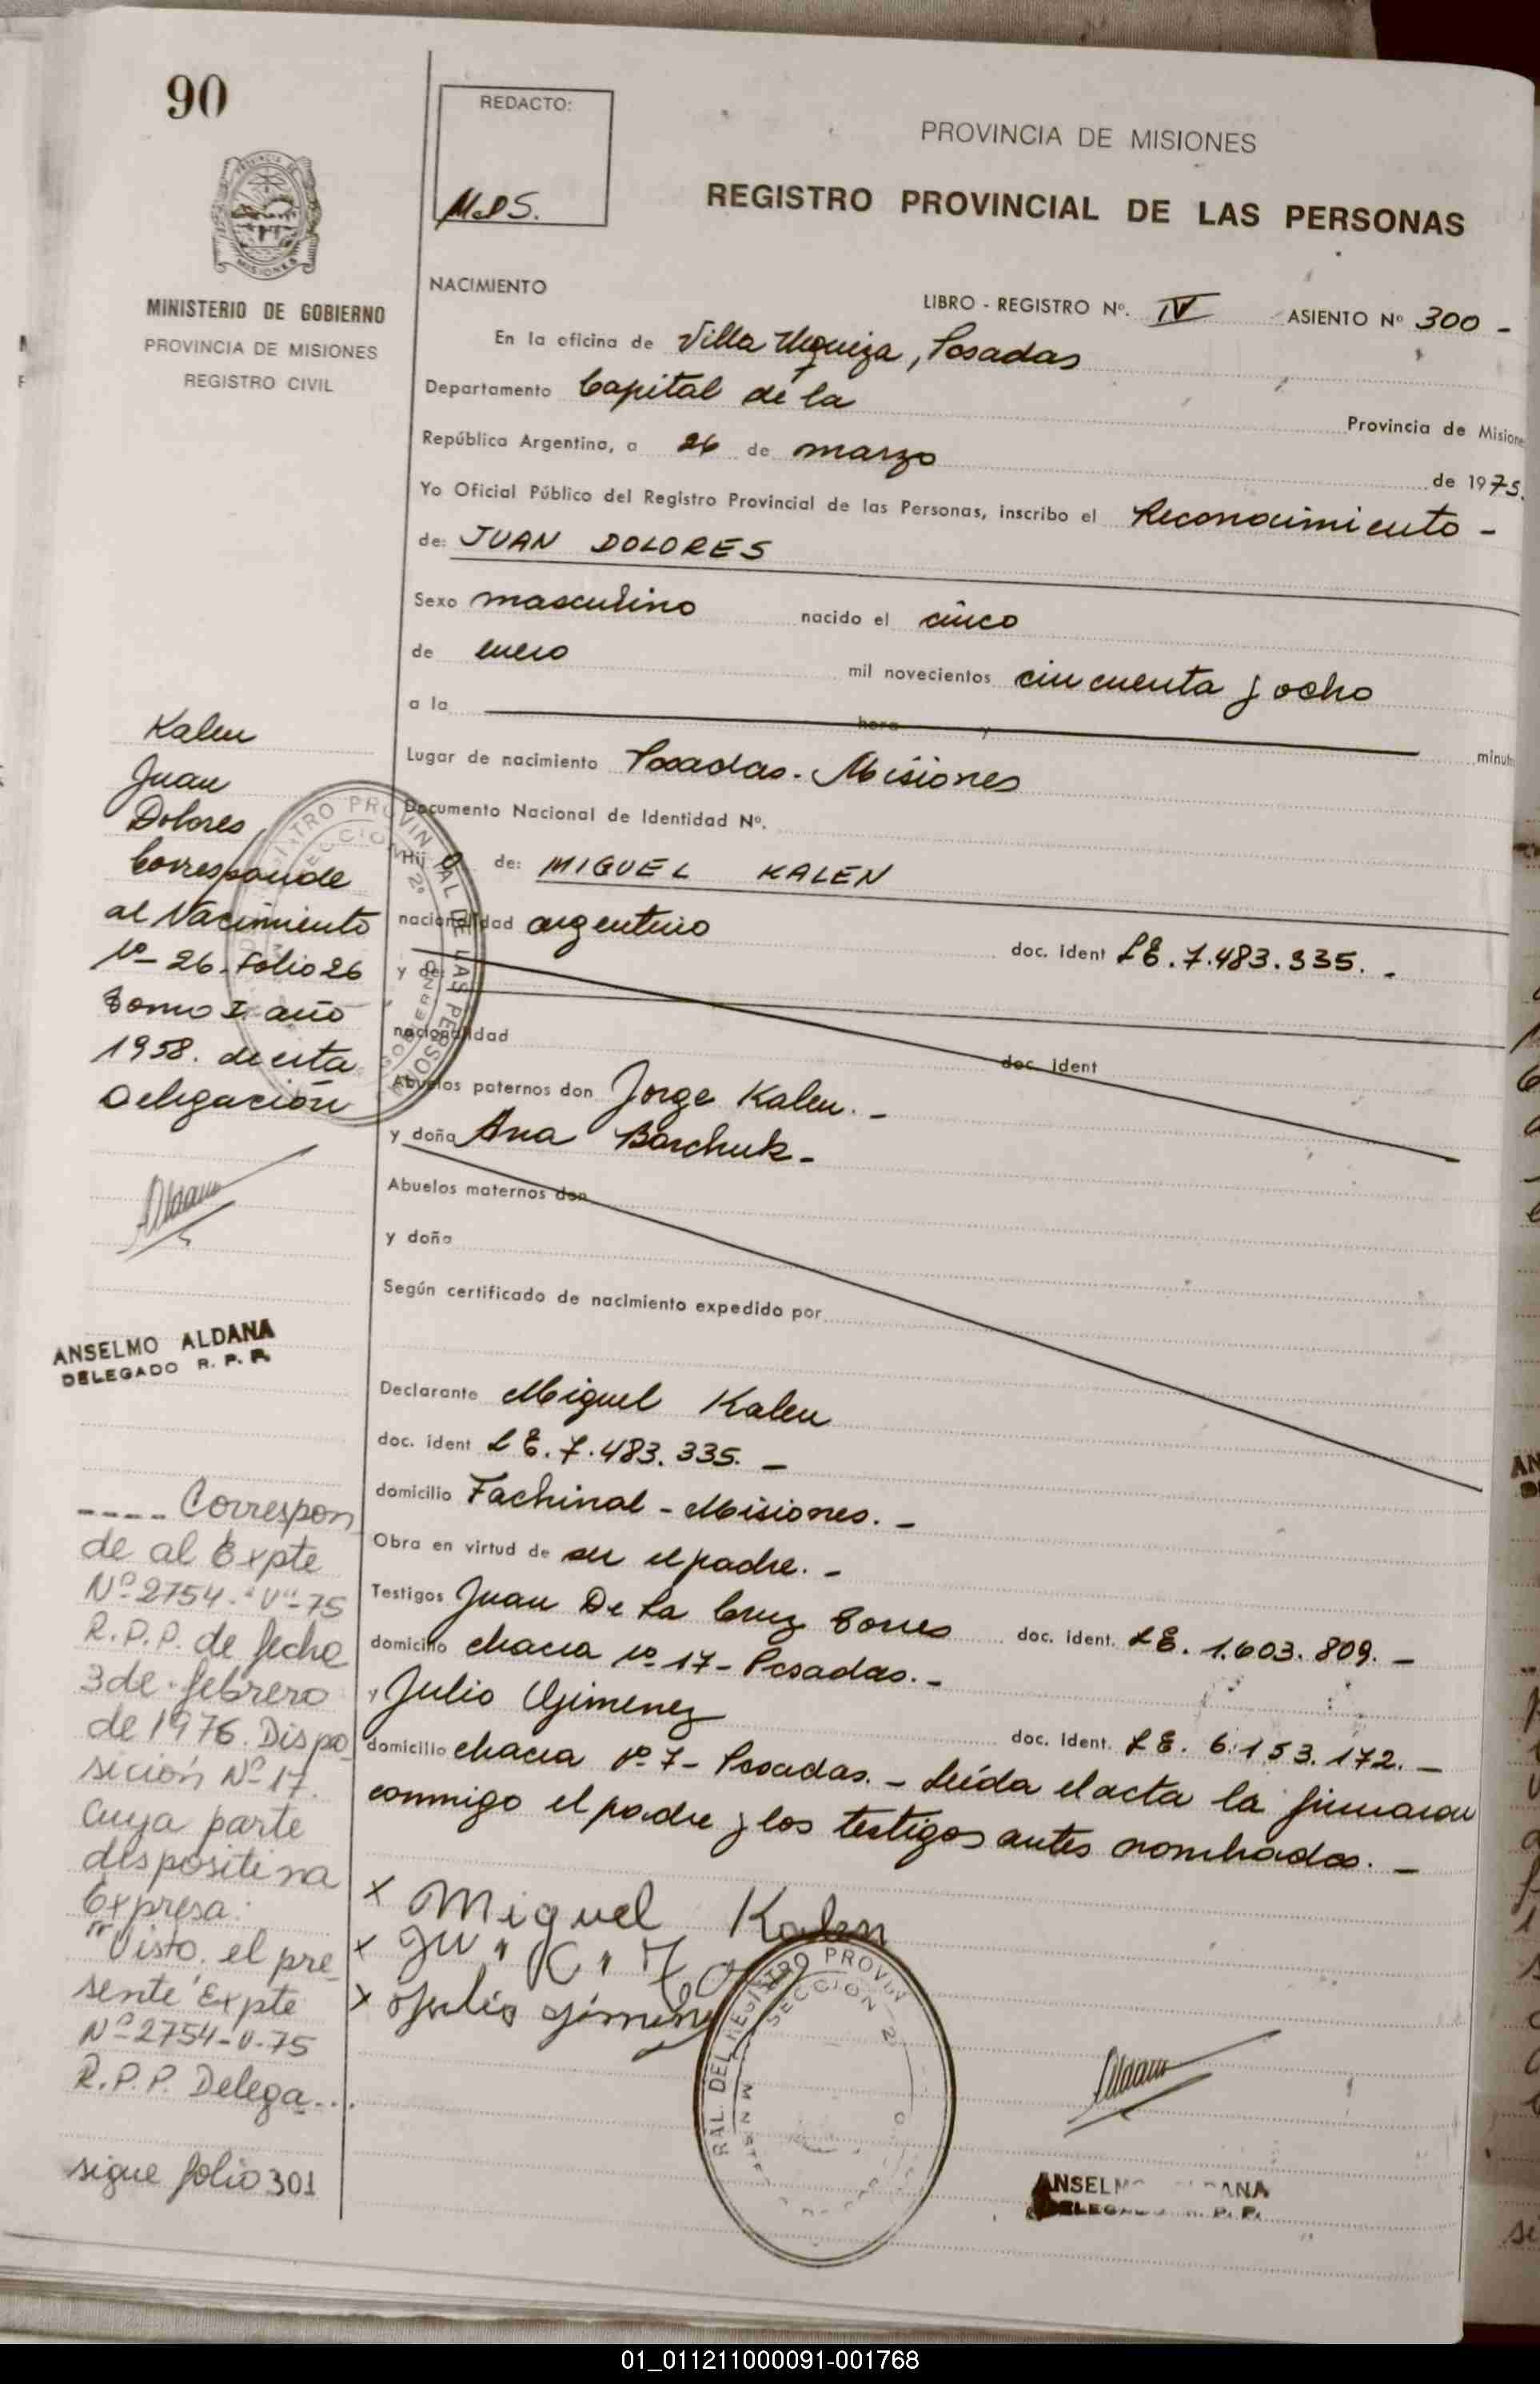 90
REDACTO:
M.D.S.
PROVINCIA DE MISIONES
REGISTRO PROVINCIAL DE LAS PERSONAS
MISIONES
MINISTERIO DE GOBIERNO
PROVINCIA DE MISIONES
REGISTRO CIVIL
NACIMIENTO
LIBRO - REGISTRO Nº. IV ASIENTO Nº 300 -
En la oficina de Villa Urquiza, Posadas
Departamento Capital de la Provincia de Misione
República Argentina, a 26 de marzo de 1975.
Yo Oficial Público del Registro Provincial de las Personas, inscribo el Reconocimiento -
de: JUAN DOLORES
Sexo masculino nacido el cinco
de enero mil novecientos cincuenta y ocho
a la hora y minut
Lugar de nacimiento Posadas - Misiones
Documento Nacional de Identidad Nº.
Hijo de: MIGUEL KALEN
nacionalidad argentino doc. ident L E. 7.483.335. -
y de:
nacionalidad doc. ident
Abuelos paternos don Jorge Kalen. -
y doña Ana Barchuk -
Abuelos maternos don
y doña
Según certificado de nacimiento expedido por
Declarante Miguel Kalen
doc. ident L E. 7.483.335. -
domicilio Fachinal - Misiones. -
Obra en virtud de ser el padre. -
Testigos Juan De La Cruz Torres doc. ident. L E. 1.603.809. -
domicilio chacra Nº 17 - Posadas. -
y Julio Gimenez doc. Ident. L E. 6.153.172. -
domicilio chacra Nº 7 - Posadas. - Leída el acta la firmaron
conmigo el padre y los testigos antes nombrados. -
x Miguel Kalen
x Ju " C "
x Julio Gimenez
Kalen
Juan
Dolores
Corresponde
al Nacimiento
Nº - 26. Folio 26
Tomo I. año
1958. de esta
Delegación
ANSELMO ALDANA
DELEGADO R. P. P.
---- Correspon
de al Expte
Nº 2754 - "V" - 75
R.P.P. de fecha
3 de febrero
de 1976. Dispo
sición Nº 17
cuya parte
dispositiva
Expresa:
"Visto, el pre_
sente Expte
Nº 2754-V-75
R.P.P. Delega...
sigue folio 301
REGISTRO PROVINCIAL DE LAS PERSONAS
SECCION 2º
RAL. DEL REGISTRO PROVIN
SECCION 2
ANSELM ANA
DELEGA P. P.
01_011211000091-001768